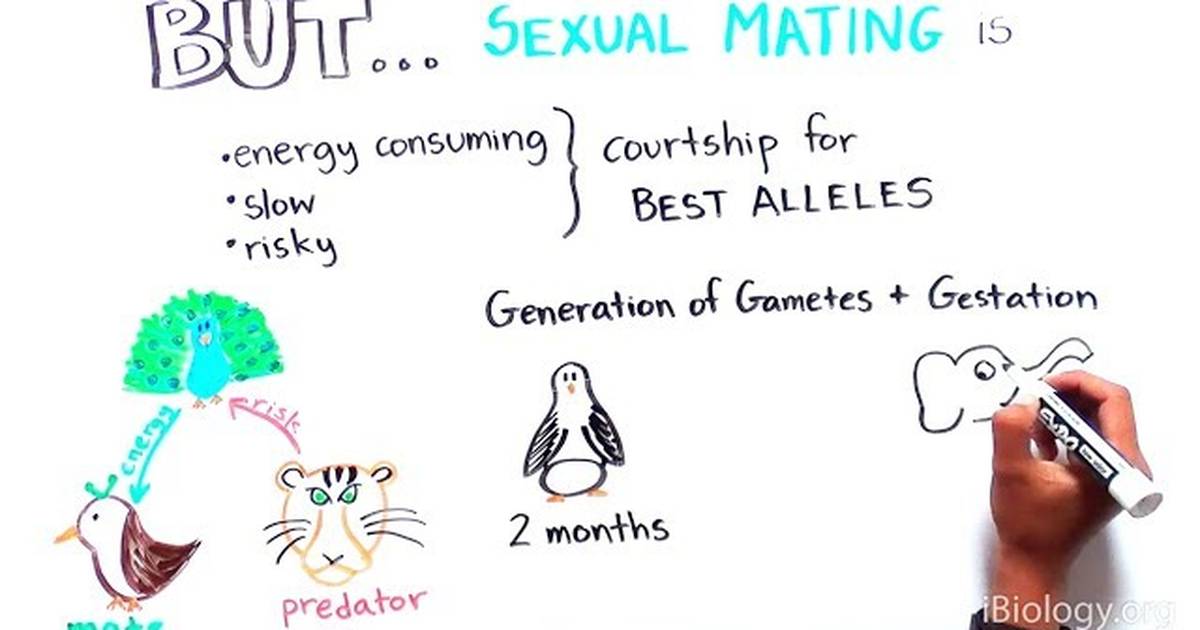 BUT... SEXUAL MATING is
•energy consuming } courtship for
•slow BEST ALLELES
•risky
Generation of Gametes + Gestation
risk
energy
EXPO
2 months
predator
mate
iBiology.org